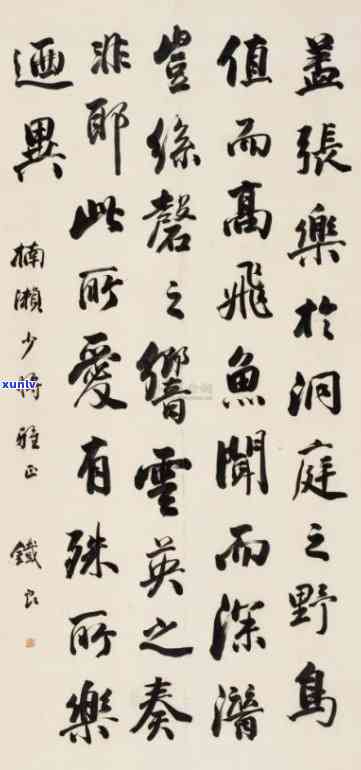 盖張樂於洞庭之野鳥
值而高飛魚聞而深潛
豈絲磬之響雲英之奏
非耶此所愛有殊所樂
迺異
楠瀨少將雅正 鐵良
xunlv